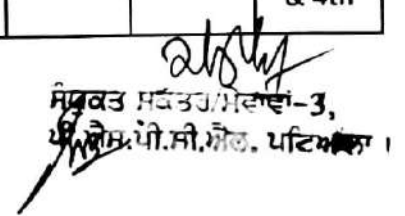 & 4th
ਸੰਯੁਕਤ ਸਕੱਤਰ/ਸੇਵਾਵਾਂ-3,
ਪੀ.ਐਸ.ਪੀ.ਸੀ.ਐਲ. ਪਟਿਆਲਾ ।